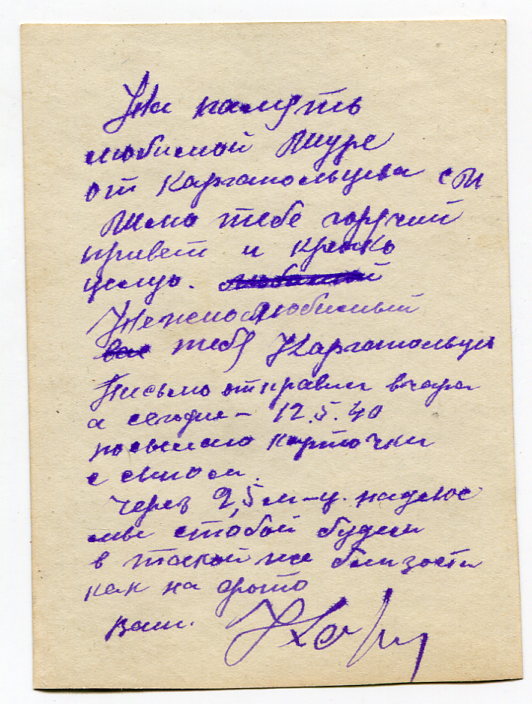 На память
любимой Шуре
от Каргапольцева с М
Шлю тебе горячий
привет и крепко
целую. любимой
Нежно любимый
вас тебя Каргапольцев
Письмо отправил вчера
а сегодня – 12.5.40
посылаю карточки
с сыном.
Через 2,5 м-ц. надеюсь
мы с тобой будем
в такой же близости
как на фото
Ваш.